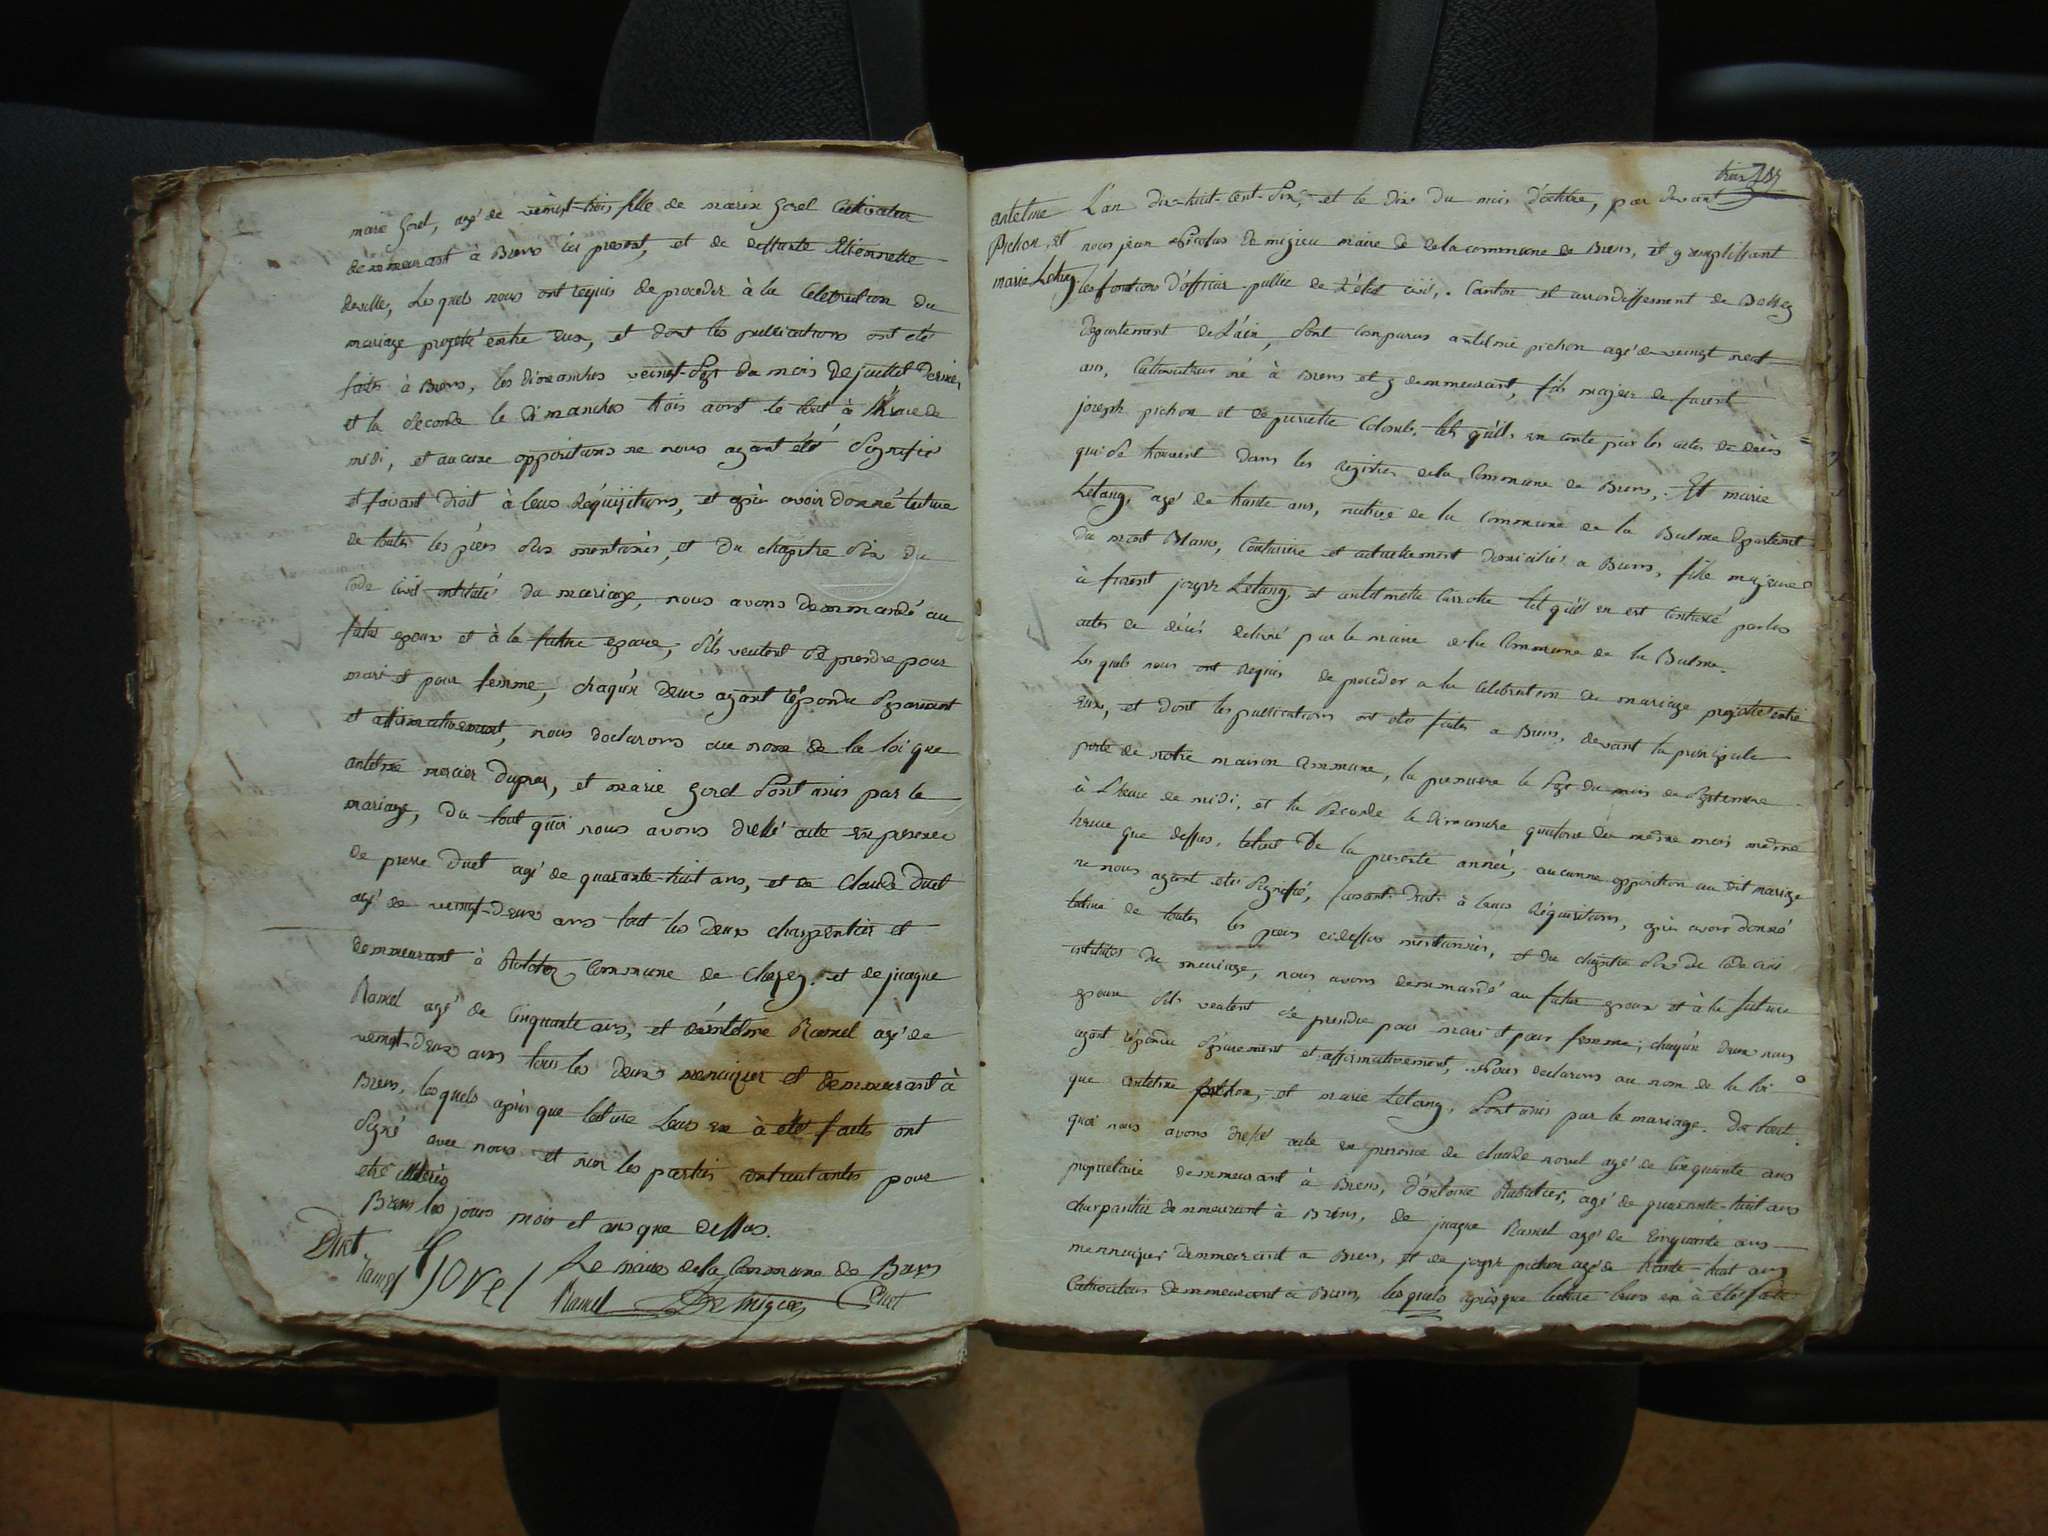 marie Jorel, agé de veingt-trois fille de marin Jorel Cultivateur
demmeurant à Brens ici present, et de deffunte Etiennette
deville, Les quels nous ont requis de proceder à la Celebration du
mariage projetté entre eux, et dont les publications ont été
faites à Brens, les dimanches veingt-Sept du mois de juillet dernier
et la Seconde le dimanches trois aout le tout à l'heure de
midi, et aucune oppositions ne nous ayant été Signifié
et faisant droit à leurs Réquisitions, et après avoir donné lecture
de toutes les pieces Sus mentionés, et du chapitre Six du
Code Civil intitulé du mariage, nous avons demmandé au
futur epoux et à la future epouse, S'ils veulent Se prendre pour
mari et pour femme, chaqu'un deux ayant répondu Séparément
et affirmativement, nous declarons au nom de la loi que
antelme mercier Dupraz, et marie Jorel Sont unis par le
mariage, Du tout quoi nous avons dressé acte en presence
de pierre Duet agé de quarante-huit ans, et de Claude Duet
agé de veingt-deux ans tout les deux charpentier et
demmeurant à Commune de Chazey, et de jacque
Ramel agé de Cinquante ans, et d'antelme Ramel agé de
veingt-deux ans tous les deux menuizier et demmeurant à
Brens, lesquels après que lecture leurs en à été faite ont
Signé avec nous et non les parties contractantes pour
etre
Brens les jours mois et ans que dessus.
Duet
Ramel Jorel Le maire de la Commune de Brens
Ramel De migieu Duet
antelme
Pichon, et
marie Letang
L'an dix-huit-cent-Six, et le dix du mois d'octobre, par devant
nous jean Nicolas De migieu maire de de la commune de Brens, et y remplissant
les fontions d'officier public de l'état civil, Canton et arrondissement de Belley
Departement de L'ain, Sont Comparus antelme pichon agé de veingt neuf
ans, Cultivateur né à Brens et y demmeurant, fils majeur de furent
joseph pichon et de pierrette Colomb, tels qu'il en conte par les actes de décès
qui Se trouvent dans les Registres de la Commune de Brens, Et marie
Letang, agé de trante ans, native de la Commune de la Balme Département
du mont Blanc, Couturiere et actuellement domiciliée a Brens, fille majeure
à furent joseph Letang, et antelmette Carrotte tel qu'il en est constaté par les
actes de décès delivré par le maire de la Commune de la Balme.
Les quels nous ont requis de procéder a la Celebration du mariage projetté entre
eux, et dont les publications ont été faites a Brens, devant la principale
porte de notre maison Commune, la premiere le Sept du mois de Septembre
à l'heure de midi, et la Seconde le dimanche quatorze du même mois même
heure que dessus, le tout de la presente année, aucunne opposition au dit mariage
ne nous ayant été Signifié, faisant droit à leurs Réquisitions, après avoir donné
lecture de toutes les pieces cidessus mentionnées, et du chapitre Six du Code Civil
intitulée du mariage, nous avons demmandé au futur epoux et à la future
epouse S'ils veulent Se prendre pour mari et pour femme; chaqu'un deux nous
ayant répondu Séparement et affirmativement, Nous declarons au nom de la loi
que antelme pichon, et marie Letang, Sont unis par le mariage. Du tout
quoi nous avons dressé acte en presence de claude novel agé de Cinquante ans
propriétaire demmeurant à Brens, d'antoine Rabatier, agé de quarante-huit ans
charpantier demmeurant à Brens, de jacque Ramel agé de Cinquante ans
mennuizier demmeurant a Brens, et de joseph pichon agé de trante-huit ans
Cultivateur demmeurant à Brens, les quels après que lecture leurs en à été faite